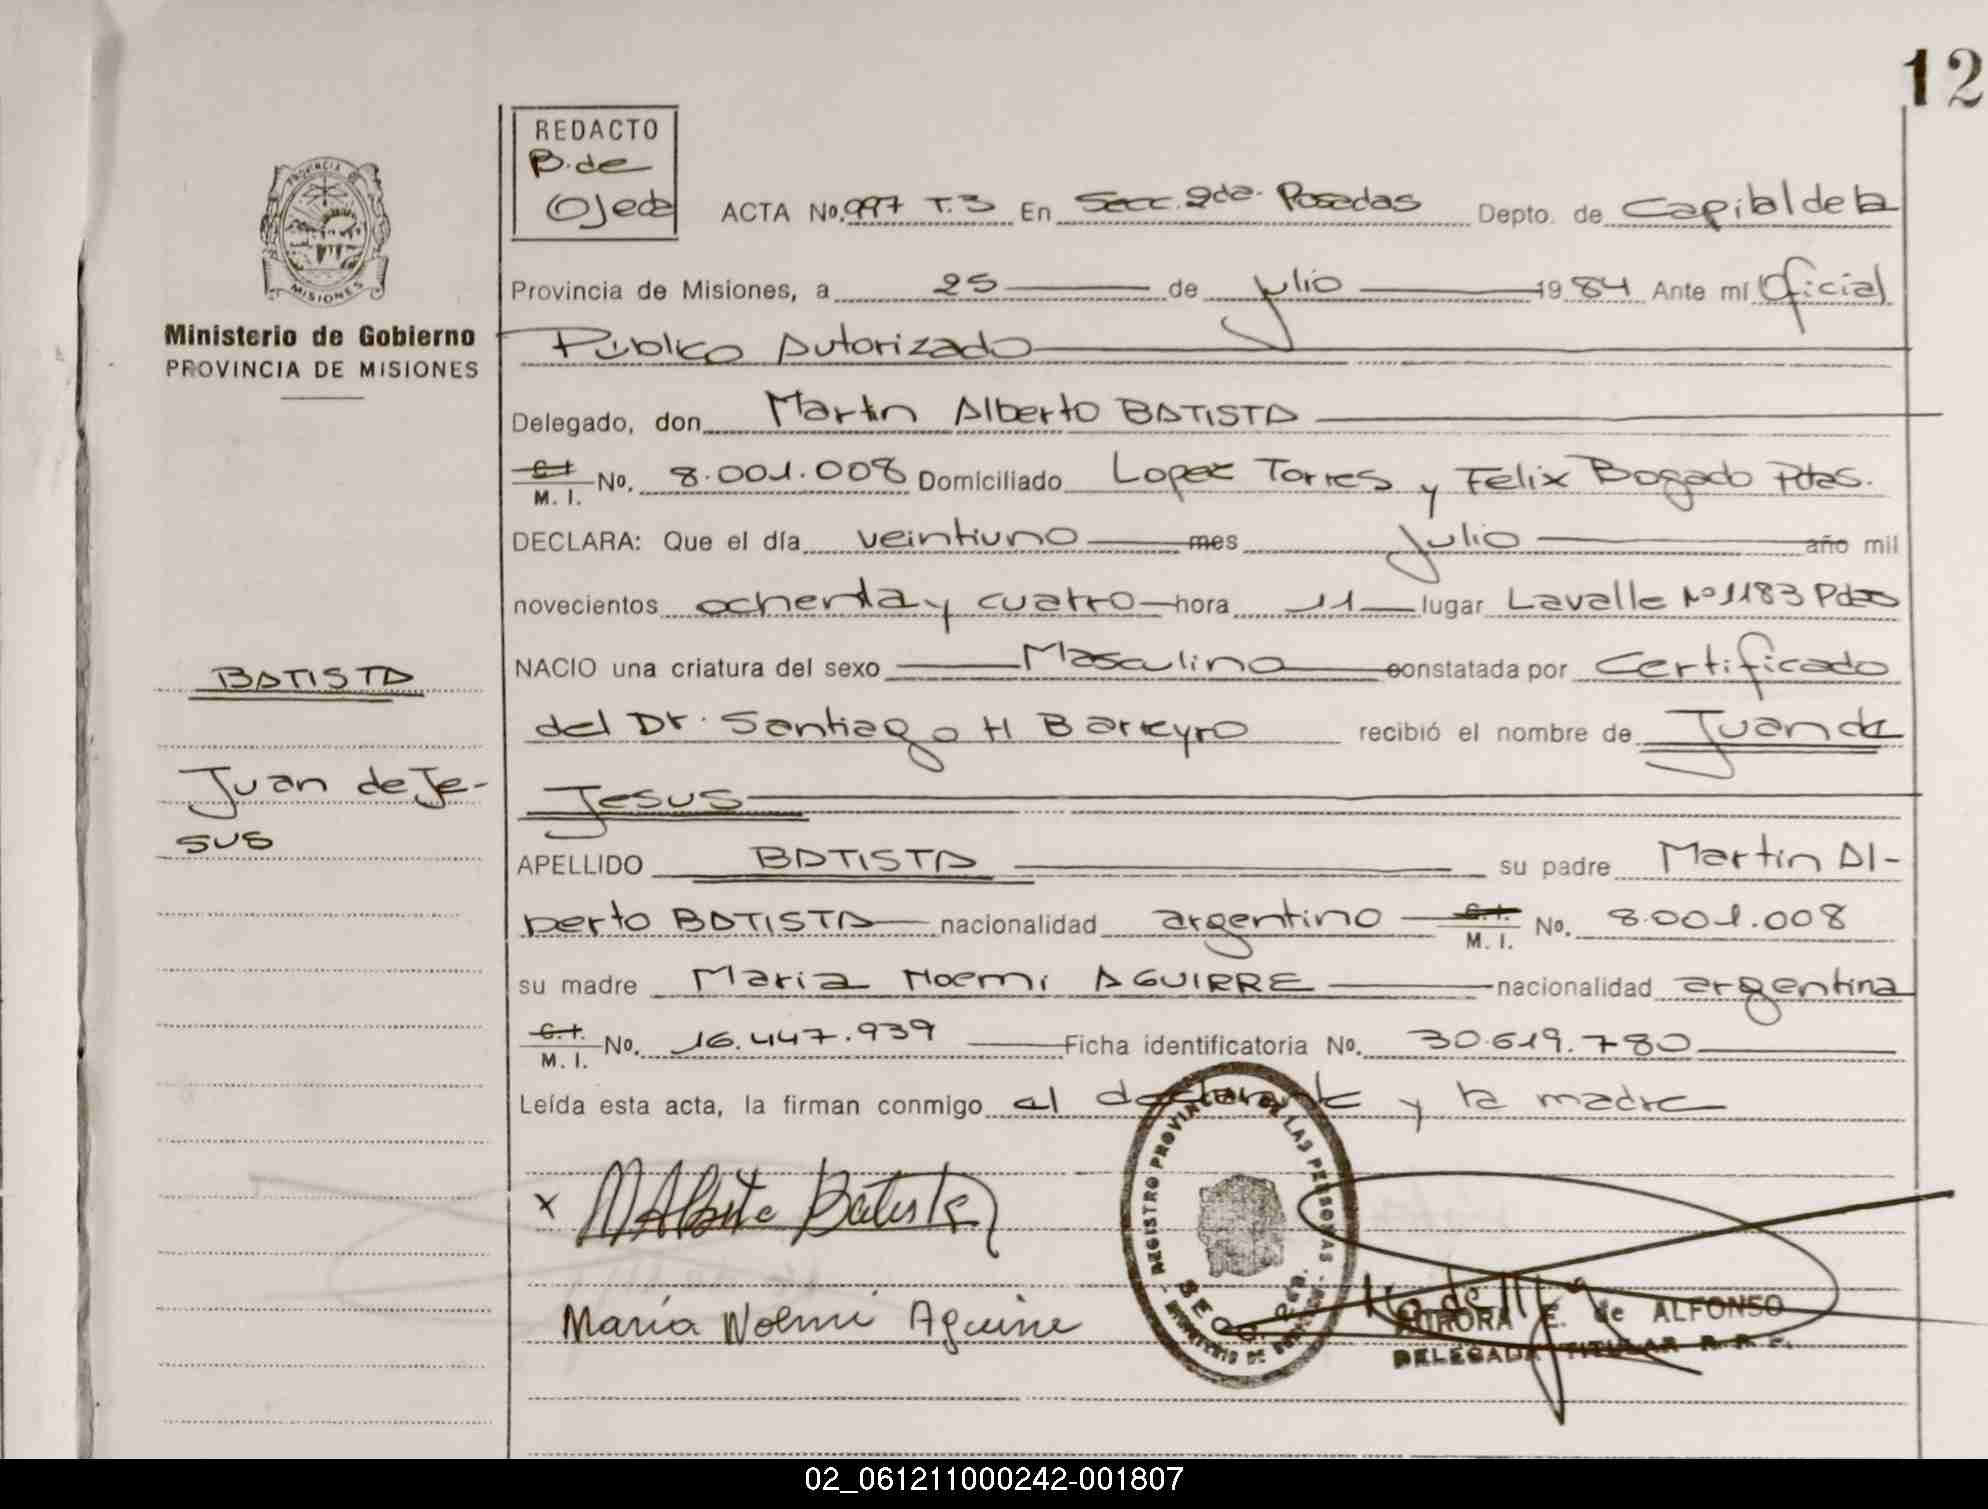 12
REDACTO
B. de
Ojeda
ACTA No. 997 T. 3 En Secc. 2da. Posadas Depto. de Capital de la
PROVINCIA DE
MISIONES
Provincia de Misiones, a 25 de julio 1984 Ante mí Oficial
Ministerio de Gobierno
PROVINCIA DE MISIONES
Público Autorizado
Delegado, don Martin Alberto BATISTA
C.I.
M. I. No. 8.001.008 Domiciliado Lopez Torres y Felix Bogado Pdas.
DECLARA: Que el día veintiuno mes julio año mil
novecientos ochenta y cuatro hora 11 lugar Lavalle Nº 1183 Pdas
NACIO una criatura del sexo Masculino constatada por Certificado
BATISTA
del Dr. Santiago H Barreyro recibió el nombre de Juan de
Juan de Je-
sus
Jesus
APELLIDO BATISTA su padre Martin Al-
berto BATISTA nacionalidad argentino C.I.
M. I. No. 8.001.008
su madre Maria Noemi AGUIRRE nacionalidad argentina
C.I.
M. I. No. 16.447.939 Ficha identificatoria No. 30.619.780
Leída esta acta, la firman conmigo el declarante y la madre
x MAlberto Batista
REGISTRO PROVINCIAL DE LAS PERSONAS
SECC. 2da.
MINISTERIO DE GOBIERNO
María Noemi Aguirre
AURORA E. de ALFONSO
DELEGADA TITULAR R. P. P.
02_061211000242-001807